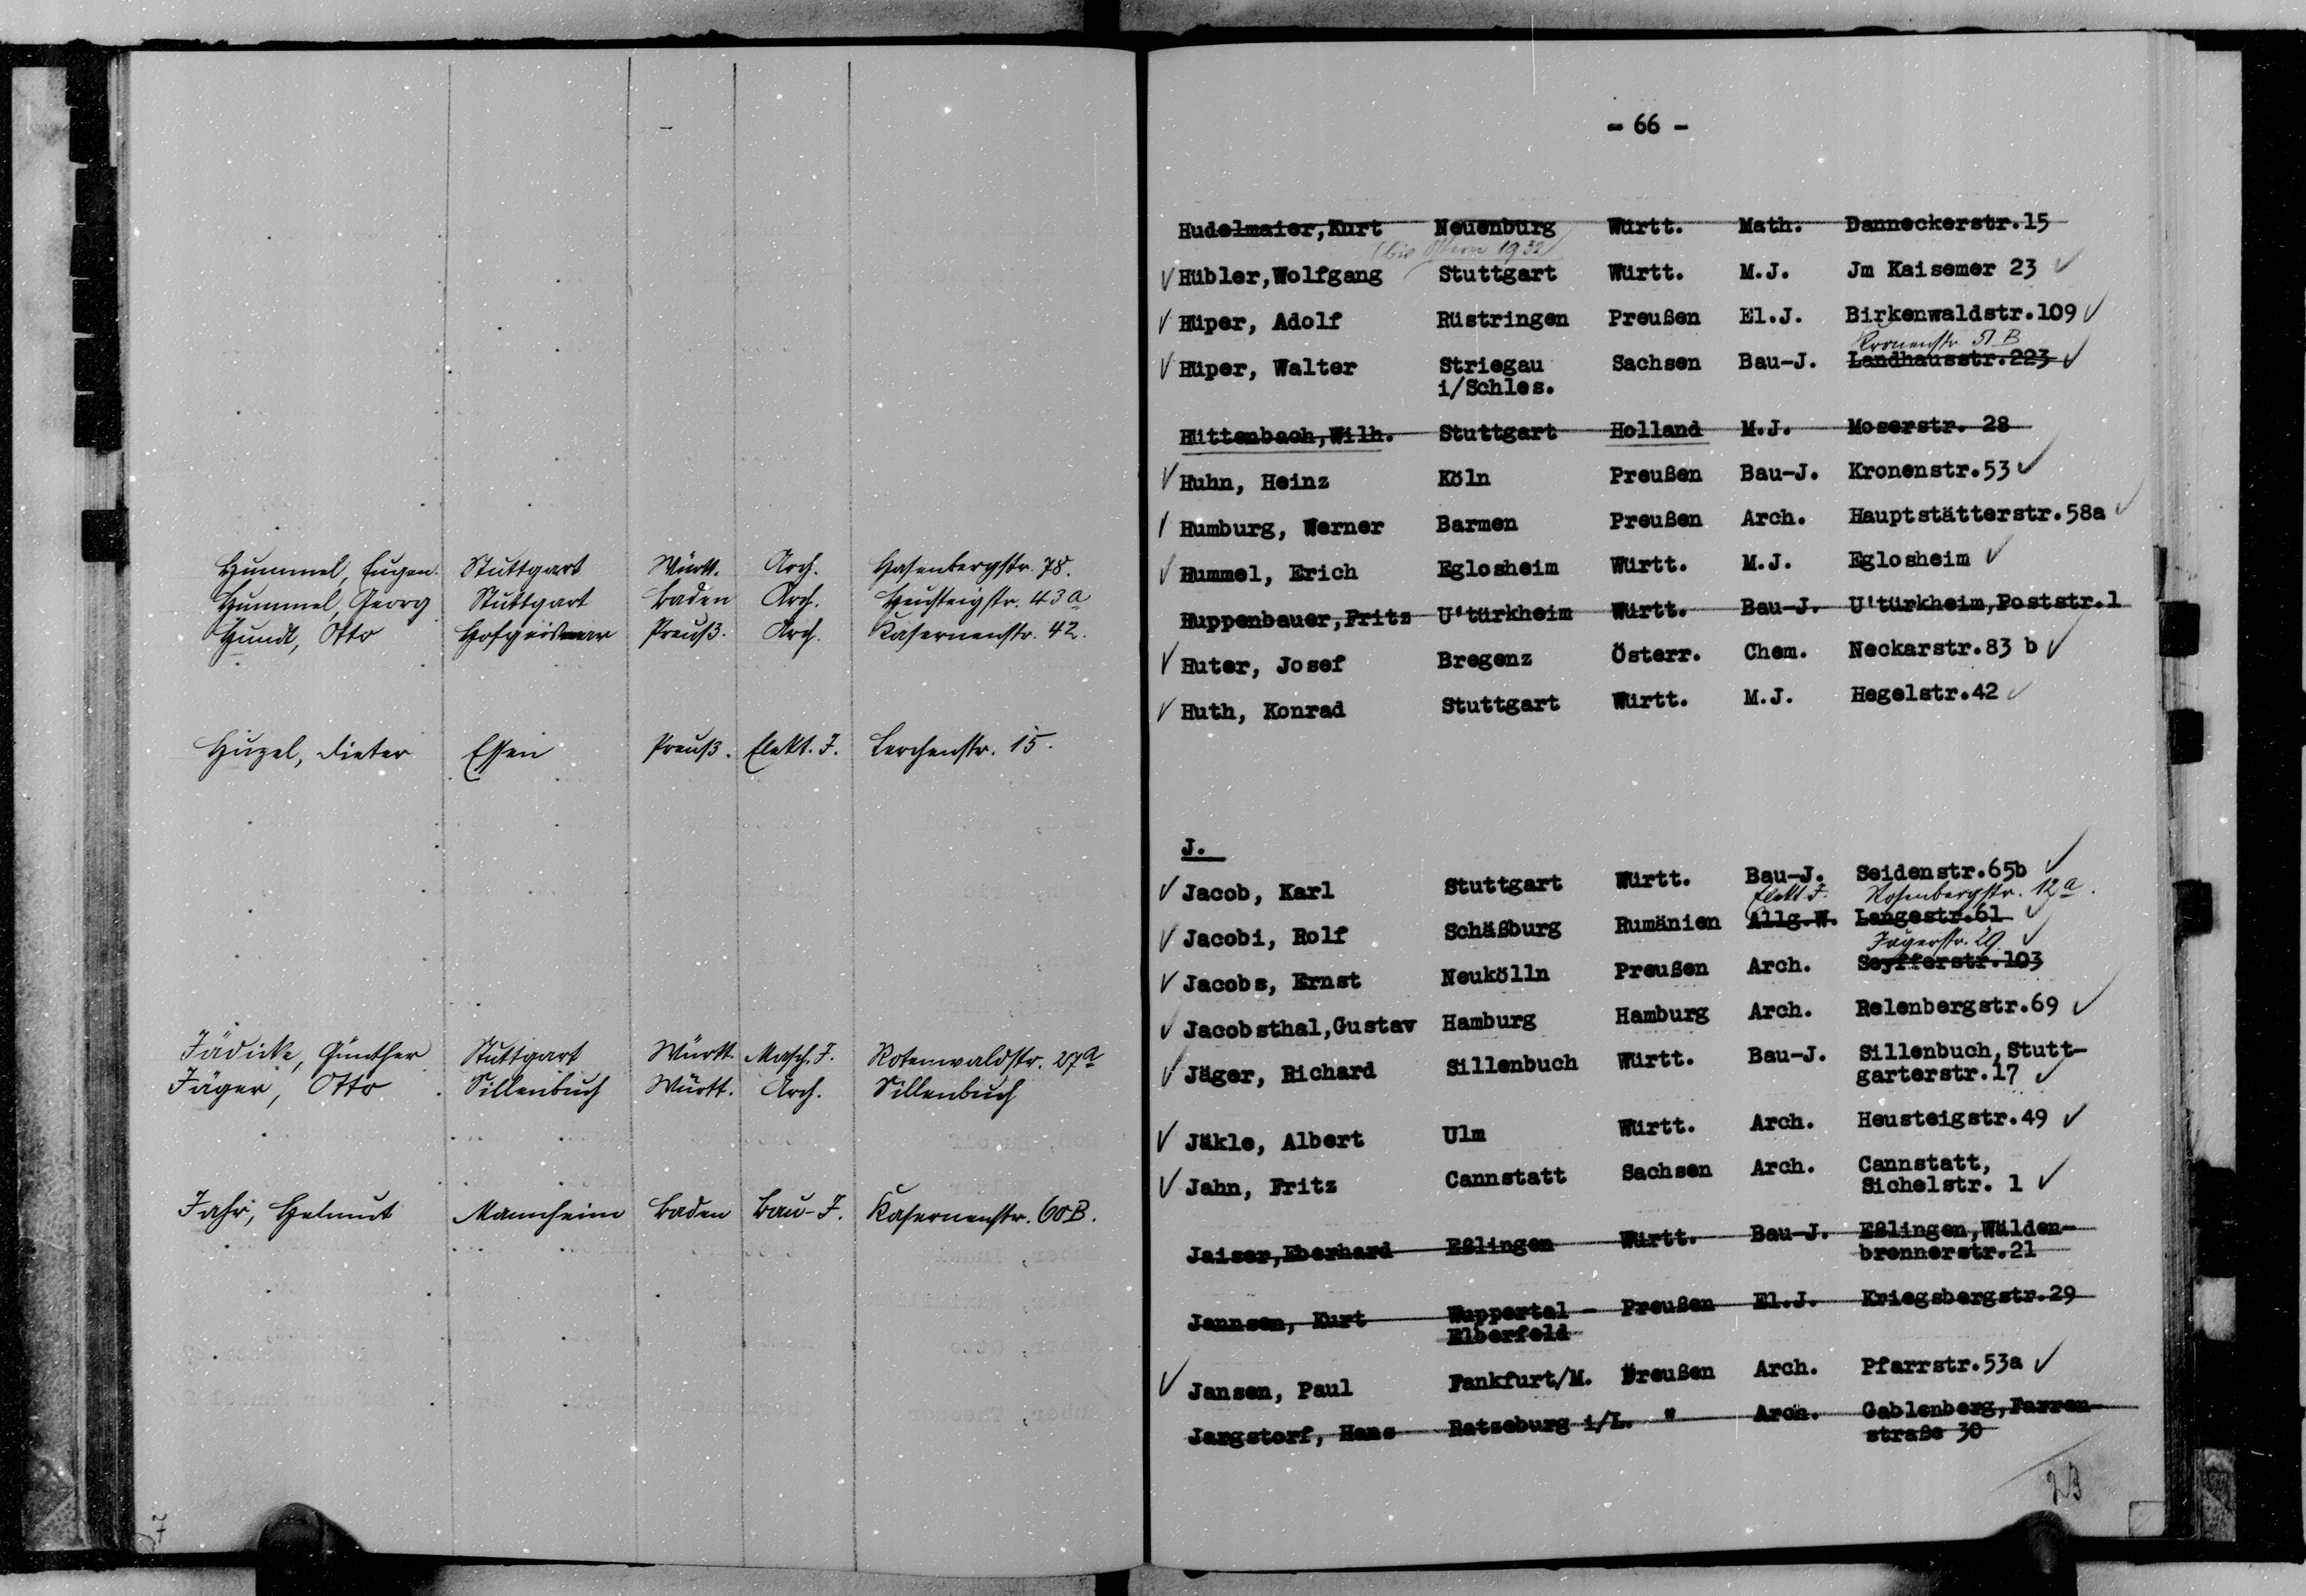 Hummel, Eugen. Stuttgart Württ. Arch. Hasenbergstr. 78.
Hummel, Georg Stuttgart Baden Arch. Heusteigstr. 43a
Hundt, Otto Hofgeismar Preuß. Arch. Kasernenstr. 42.
Huzel, Dieter Essen Preuß. Elekt. J. Lerchenstr. 15.
Jädicke, Günther Stuttgart Württ. Masch. J. Rotenwaldstr. 27a
Jäger, Otto Sillenbuch Württ. Arch. Sillenbuch
Jahr, Helmut Mannheim Baden Bau-J. Kasernenstr. 60B.
7
- 66 -
Hudelmaier, Kurt Neuenburg Württ. Math. Danneckerstr.15
(bis Ostern 1932)
Hübler, Wolfgang Stuttgart Württ. M.J. Jm Kaisemer 23
Hüper, Adolf Rüstringen Preußen El.J. Birkenwaldstr.109
Kronenstr. 51 B
Hüper, Walter Striegau Sachsen Bau-J. Landhausstr.223
i/Schles.
Hüttenbach, Wilh. Stuttgart Holland M.J. Moserstr. 28
Huhn, Heinz Köln Preußen Bau-J. Kronenstr.53
Humburg, Werner Barmen Preußen Arch. Hauptstätterstr.58a
Hummel, Erich Eglosheim Württ. M.J. Eglosheim
Huppenbauer, Fritz U'türkheim Württ. Bau-J. U'türkheim, Poststr.1
Huter, Josef Bregenz Österr. Chem. Neckarstr.83 b
Huth, Konrad Stuttgart Württ. M.J. Hegelstr.42
J.
Jacob, Karl Stuttgart Württ. Bau-J. Seidenstr.65b
Elekt J. Rosenbergstr. 12a.
Jacobi, Rolf Schäßburg Rumänien Allg.W. Langestr.61
Jägerstr. 29.
Jacobs, Ernst Neukölln Preußen Arch. Seyfferstr.103
Jacobsthal, Gustav Hamburg Hamburg Arch. Relenbergstr.69
Jäger, Richard Sillenbuch Württ. Bau-J. Sillenbuch, Stutt-
garterstr.17
Jäkle, Albert Ulm Württ. Arch. Heusteigstr.49
Jahn, Fritz Cannstatt Sachsen Arch. Cannstatt,
Sichelstr. 1
Jaiser, Eberhard Eßlingen Württ. Bau-J. Eßlingen, Wälden-
bronnerstr.21
Jannsen, Kurt Wuppertal - Preußen El.J. Kriegsbergstr.29
Elberfeld
Jansen, Paul Fankfurt/M. Preußen Arch. Pfarrstr.53a
Jargstorf, Hans Ratzeburg i/L. " Arch. Gablenberg, Farren-
straße 30
23